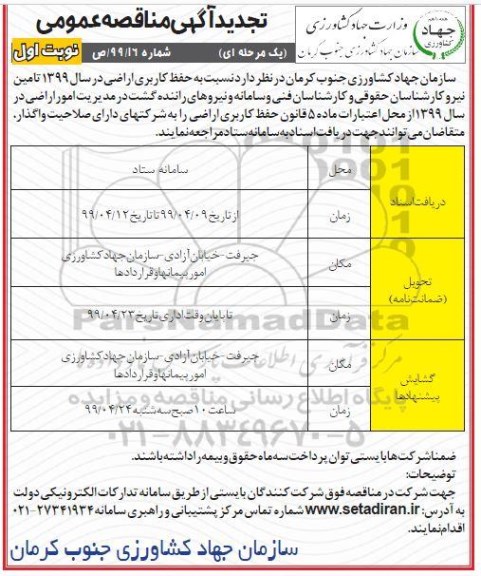 تجدید آگهی مناقصه عمومی
وزارت جهاد کشاورزی
سازمان جهاد کشاورزی جنوب کرمان
جهاد
کشاورزی
(یک مرحله ای)
شماره ۹۹/۱۶/ص
نوبت اول
سازمان جهاد کشاورزی جنوب کرمان در نظر دارد نسبت به حفظ کاربری اراضی در سال ۱۳۹۹ تامین
نیرو کارشناسان حقوقی و کارشناسان فنی و سامانه و نیروهای راننده گشت در مدیریت امور اراضی در
سال ۱۳۹۹ از محل اعتبارات ماده ۵ قانون حفظ کاربری اراضی را به شرکتهای دارای صلاحیت واگذار،
متقاضیان می توانند جهت دریافت اسناد به سامانه ستاد مراجعه نمایند.
دریافت اسناد
محل
سامانه ستاد
زمان
از تاریخ ۹۹/۰۴/۰۹ تا تاریخ ۹۹/۰۴/۱۲
تحویل
(ضمانتنامه)
مکان
جیرفت-خیابان آزادی-سازمان جهاد کشاورزی
امور پیمانها و قراردادها
زمان
تا پایان وقت اداری تاریخ ۹۹/۰۴/۲۳
گشایش
پیشنهادها
مکان
جیرفت-خیابان آزادی-سازمان جهاد کشاورزی
امور پیمانها و قراردادها
زمان
ساعت ۱۰ صبح سه شنبه ۹۹/۰۴/۲۴
ParsNamadData
پایگاه اطلاع رسانی مناقصه و مزایده
۰۲۱-۸۸۳۴۹۶۷۰-۵
ضمنا شرکت ها بایستی توان پرداخت سه ماه حقوق و بیمه را داشته باشند.
توضیحات:
جهت شرکت در مناقصه فوق شرکت کنندگان بایستی از طریق سامانه تدارکات الکترونیکی دولت
به آدرس: www.setadiran.ir شماره تماس مرکز پشتیبانی و راهبری سامانه ۲۷۳۴۱۹۳۴-۰۲۱
اقدام نمایند.
سازمان جهاد کشاورزی جنوب کرمان